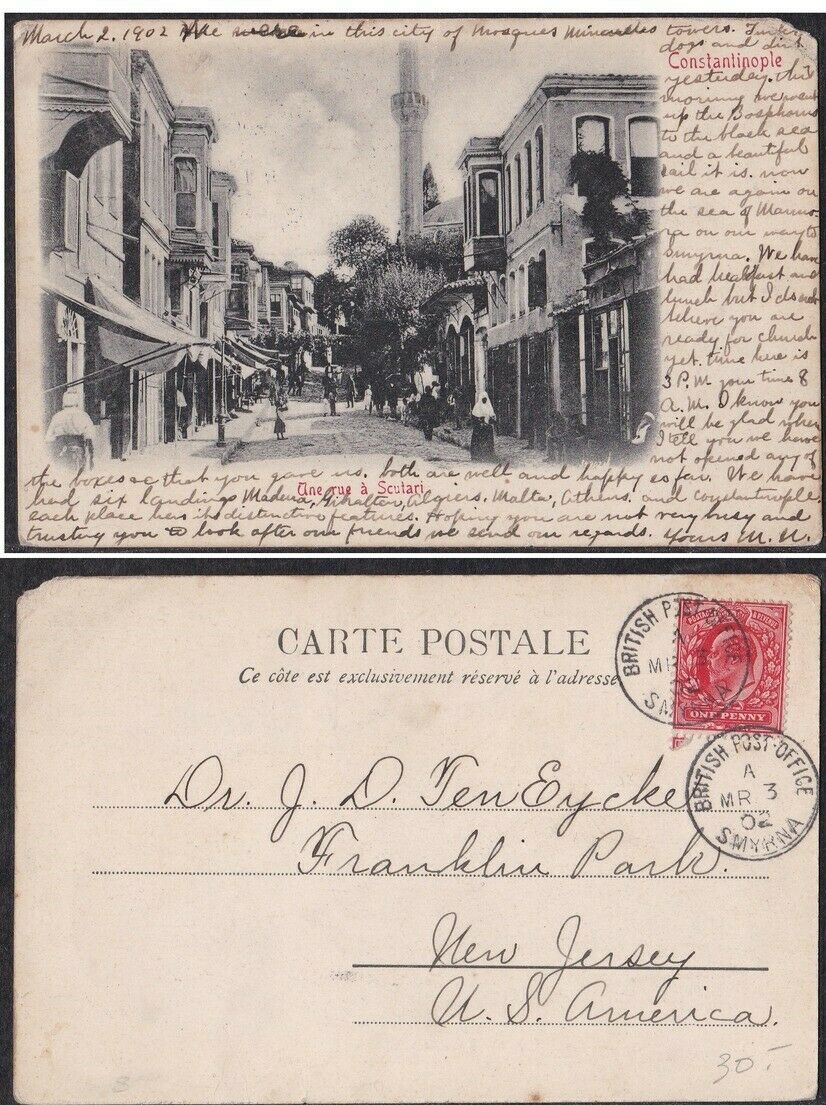 March 2. 1902 We were in this city of Mosques Minarettes towers. Turks
dogs and dirt
Constantinople
yesterday. this
morning we went
up the Bosphorus
to the black sea
and a beautiful
sail it is. now
we are again on
the sea of Marmo-
ra on our way to
Smyrna. We have
had breakfast and
lunch but I do not
believe you are
ready for church
yet. time here is
3 P.M your time 8
A.M. I know you
will be glad when
I tell you we have
not opened any of
the boxes that you gave us. both are well and happy so far. We have
Une rue à Scutari
had six landings Madera, Gibralter, Algiers, Malta, Athens, and Constantinople
each place has its distinctive features. Hoping you are not very busy and
trusting you to look after our friends we send our regards. Yours M. N.
CARTE POSTALE
Ce côte est exclusivement réservé à l'adresse
BRITISH POST-OFFICE
MR 3
SMYRNA
POSTAGE & REVENUE
ONE PENNY
BRITISH POST-OFFICE
A
MR 3
02
SMYRNA
Dr. J. D. Ten Eycke
Franklin Park.
New Jersey
U. S. America.
30.-